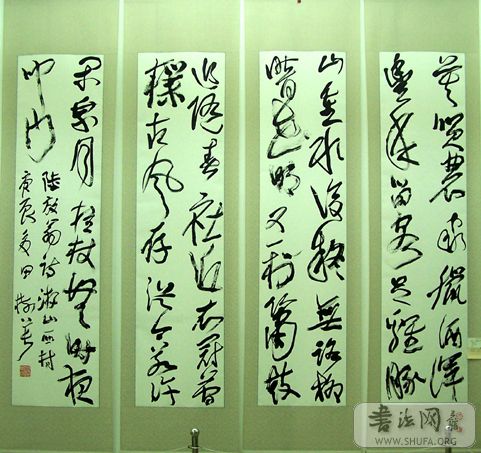 莫笑農家臘酒渾
豐年留客足雞豚
山重水復疑無路柳
暗花明又一村簫鼓
追隨春社近衣冠簡
樸古風存從今若許
閑乘月拄杖無時夜
叩門
陸放翁詩游山西村
庚辰冬田樹萇
書法网
WWW.SHUFA.ORG